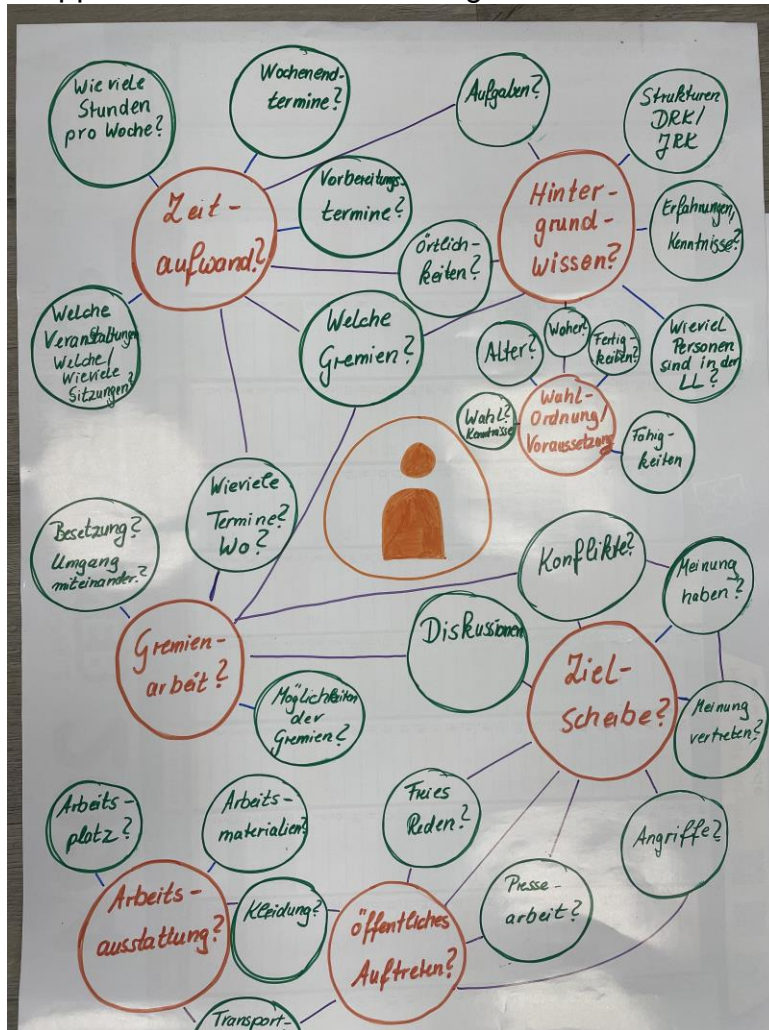 Wie viele
Stunden
pro Woche?
Wochenend-
termine?
Aufgaben?
Strukturen
DRK/
JRK
Zeit-
aufwand?
Vorbereitungs-
termine?
Hinter-
grund-
wissen?
Erfahrungen,
Kenntnisse?
Örtlich-
keiten?
Welche
Veranstaltungen
Welche/
Wieviele
Sitzungen?
Welche
Gremien?
Woher?
Alter?
Fertig-
keiten?
Wieviel
Personen
sind in der
LL?
Wahl?
Kenntnisse
Wahl-
Ordnung/
Voraussetzung
Fähig-
keiten
Besetzung?
Umgang
miteinander?
Wieviele
Termine?
Wo?
Konflikte?
Meinung
haben?
Gremien-
arbeit?
Diskussionen
Ziel-
scheibe?
Möglichkeiten
der
Gremien?
Meinung
vertreten?
Arbeits-
platz?
Arbeits-
materialien?
Freies
Reden?
Angriffe?
Arbeits-
ausstattung?
Kleidung?
öffentliches
Auftreten?
Presse-
arbeit?
Transport-